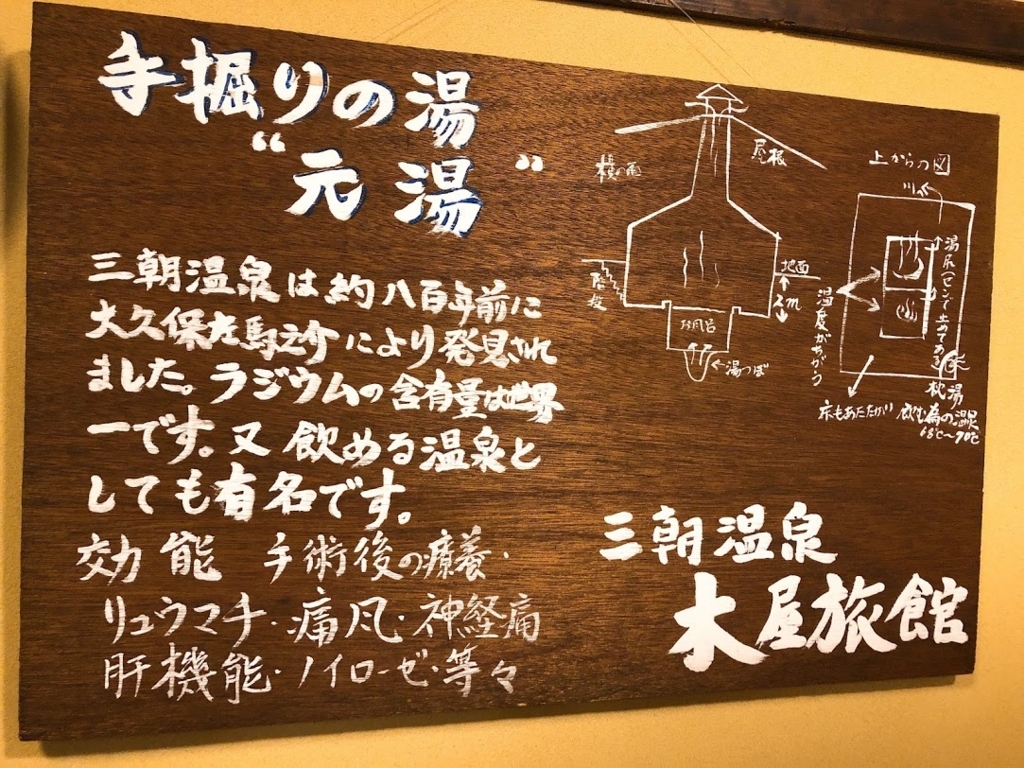 手掘りの湯
“元湯”
三朝温泉は約八百年前に
大久保左馬之介により発見され
ました。ラジウムの含有量は世界
一です。又飲める温泉と
しても有名です。
効能 手術後の療養・
リュウマチ・痛风・神経痛
肝機能・ノイローゼ・等々
屋根
横の面
階段
地面
2m
お風呂
湯つぼ
上からの図
湯尻(センで止めてある
温度がちがう
枕湯
床もあたたかい
飲む為の温泉
68℃〜70℃
三朝温泉
木屋旅館